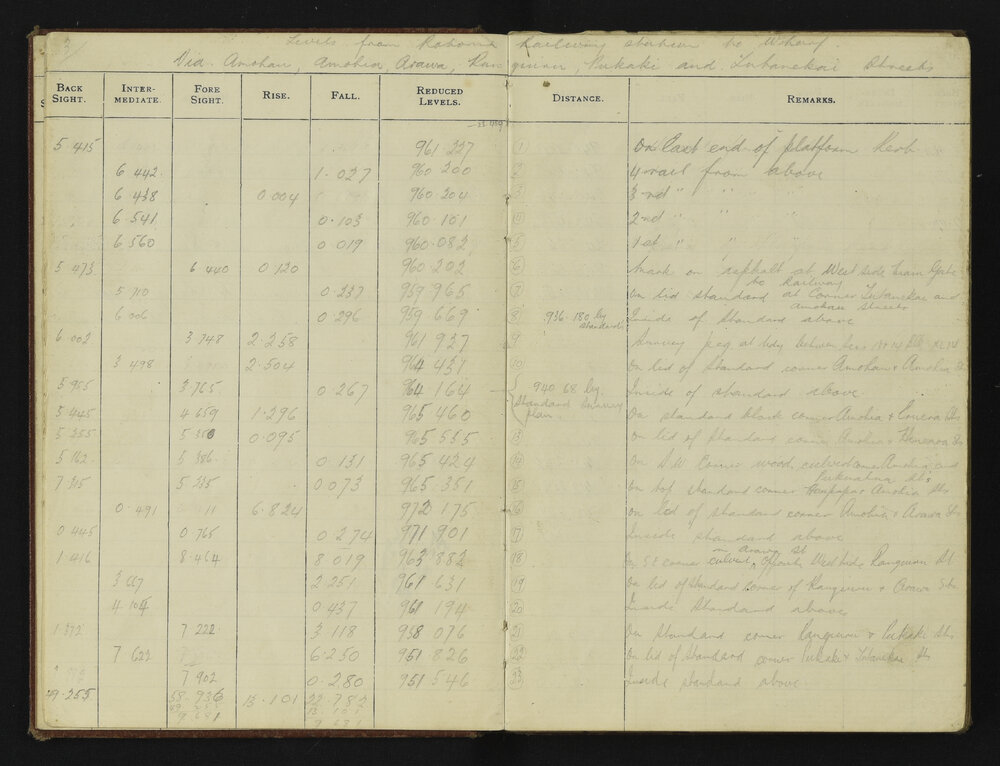 Levels from Railway station to Wharf
Via Amohau, Amohia, Arawa, Pukaki and Tutanekai Streets
BACK SIGHT. INTER-MEDIATE. FORE SIGHT. RISE. FALL. REDUCED LEVELS. DISTANCE. REMARKS.
5 415 961·227 1 On East end of platform Kerb
6 442 1·027 960 200 2 4 rail from above
6 438 0·004 960·204 3 3rd " " "
6·541 0·103 960·101 4 2nd " " "
6 560 0·019 960·082 5 1st " " "
5 473 6 440 0·120 960·202 6 Mark on asphalt at West side Gate
to Railway
5 710 0·237 959·965 7 On lid standard at Corner Tutanekai and
Amohau Streets
6 006 0·296 959·669 8 936·180 by standard Inside of standard above
6 002 3 748 2·258 961 927 9 Survey peg at bdy between
3 498 2·504 964 431 10 On lid of standard corner Amohau & Amohia St
5 955 3·765 0·267 964·164 940 68 by Standard Survey plan Inside of standard above
5·445 4 659 1·296 965·460 On standard block corner Amohia & Sts
5 355 5 350 0·095 965·555 13 On lid of standard corner Amohia & Sts
5 162 5 386 0·131 965·424 14 On SW Corner wood culvert Amohia and
Pukuatua St's
7 315 5 235 0 073 965·351 15 On top standard corner & Amohia Sts
0·491 11 6·824 972 175 16 On lid of standard corner Amohia & Arawa Sts
0 445 0 765 0·274 971 901 17 Inside standard above
on Arawa St
1·416 8·464 8·019 963·882 18 On SE corner culvert, West side St
3 667 2·251 961 631 19 On lid of standard corner of & Arawa Sts
4 104 0 437 961 194 20 Inside Standard above
1 372 7 222 3·118 958 076 21 On standard corner & Pukaki Sts
7 622 6·250 951·826 22 On lid of standard corner Pukaki & Tutanekai Sts
7 902 0·280 951·546 23 Inside standard above
49·255 58·936 13·101 22·782
9 681
9 681